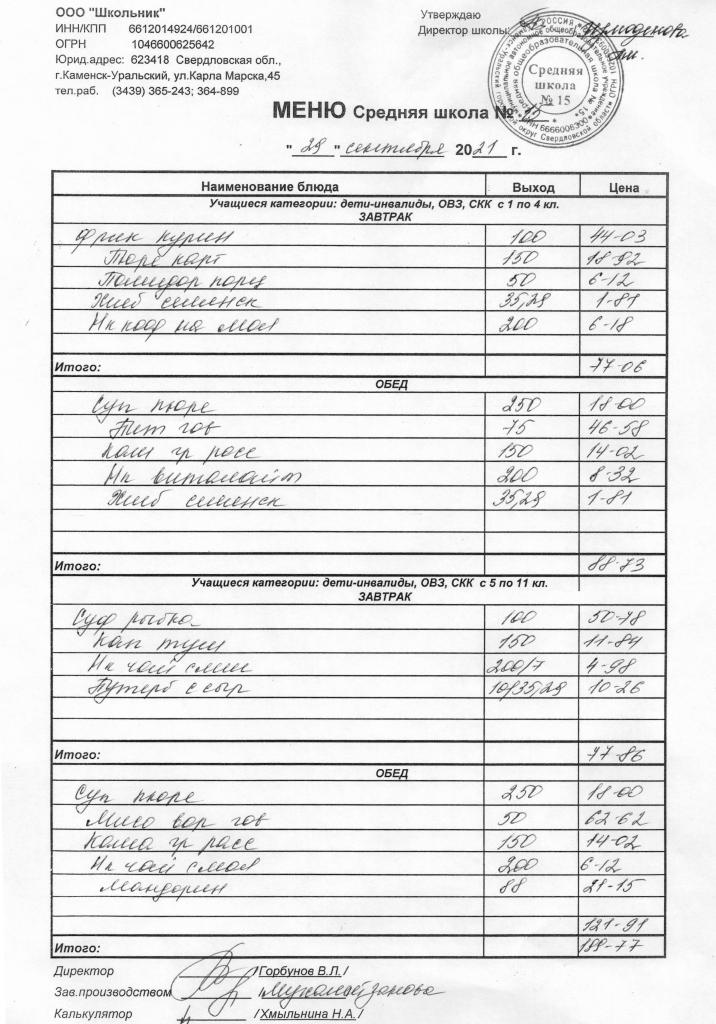 ООО "Школьник"
ИНН/КПП 6612014924/661201001
ОГРН 1046600625642
Юрид.адрес: 623418 Свердловская обл.,
г.Каменск-Уральский, ул.Карла Марска,45
тел.раб. (3439) 365-243; 364-899
Утверждаю
Директор школы:
Средняя
школа
№ 15
МЕНЮ Средняя школа № 15
" 29 " сентября 2021 г.
Наименование блюда Выход Цена
Учащиеся категории: дети-инвалиды, ОВЗ, СКК с 1 по 4 кл.
ЗАВТРАК
Фрик курин 100 44-03
Пюре карт 150 18-92
Помидор порц 50 6-12
Хлеб семенск 35,29 1-81
Нк каф на мол 200 6-18
Итого: 77-06
ОБЕД
Суп пюре 250 18-00
Теф гов 75 46-58
Каш гр расс 150 14-02
Нк витолайт 200 8-32
Хлеб семенск 35,29 1-81
Итого: 88-73
Учащиеся категории: дети-инвалиды, ОВЗ, СКК с 5 по 11 кл.
ЗАВТРАК
Суф рыбка 100 50-78
Кап туш 150 11-84
Нк чай с лим 200/7 4-98
Бутерб с сыр 10/35,29 10-26
Итого: 77-86
ОБЕД
Суп пюре 250 18-00
Мясо вар гов 50 62-62
Каша гр расс 150 14-02
Нк чай с мол 200 6-12
Мандарин 88 21-15
121-91
Итого: 199-77
Директор /Горбунов В.Л./
Зав.производством
Калькулятор /Хмыльнина Н.А./